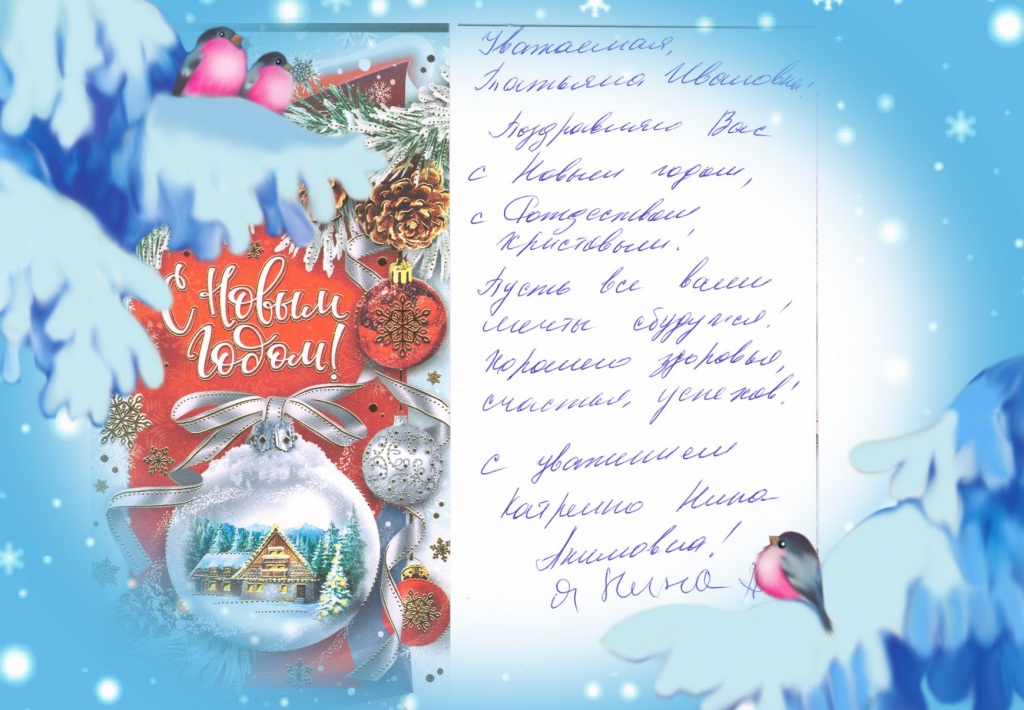 С Новым
Годом!
Уважаемая,
Татьяна Ивановна!
Поздравляю Вас
с Новым годом,
с Рождеством
Христовым!
Пусть все ваши
мечты сбудутся!
Хорошего здоровья,
счастья, успехов!
С уважением
Нина
Акимовна!
Я Нина А